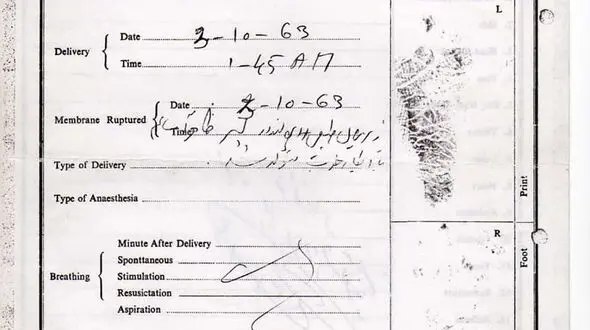 L
Delivery
Date 2-10-63
Time 1-45 AM
Membrane Ruptured
Date 2-10-63
Time
Type of Delivery
Type of Anaesthesia
Print
R
Minute After Delivery
Breathing
Sponttaneous
Stimulation
Resuscitation
Aspiration
Foot